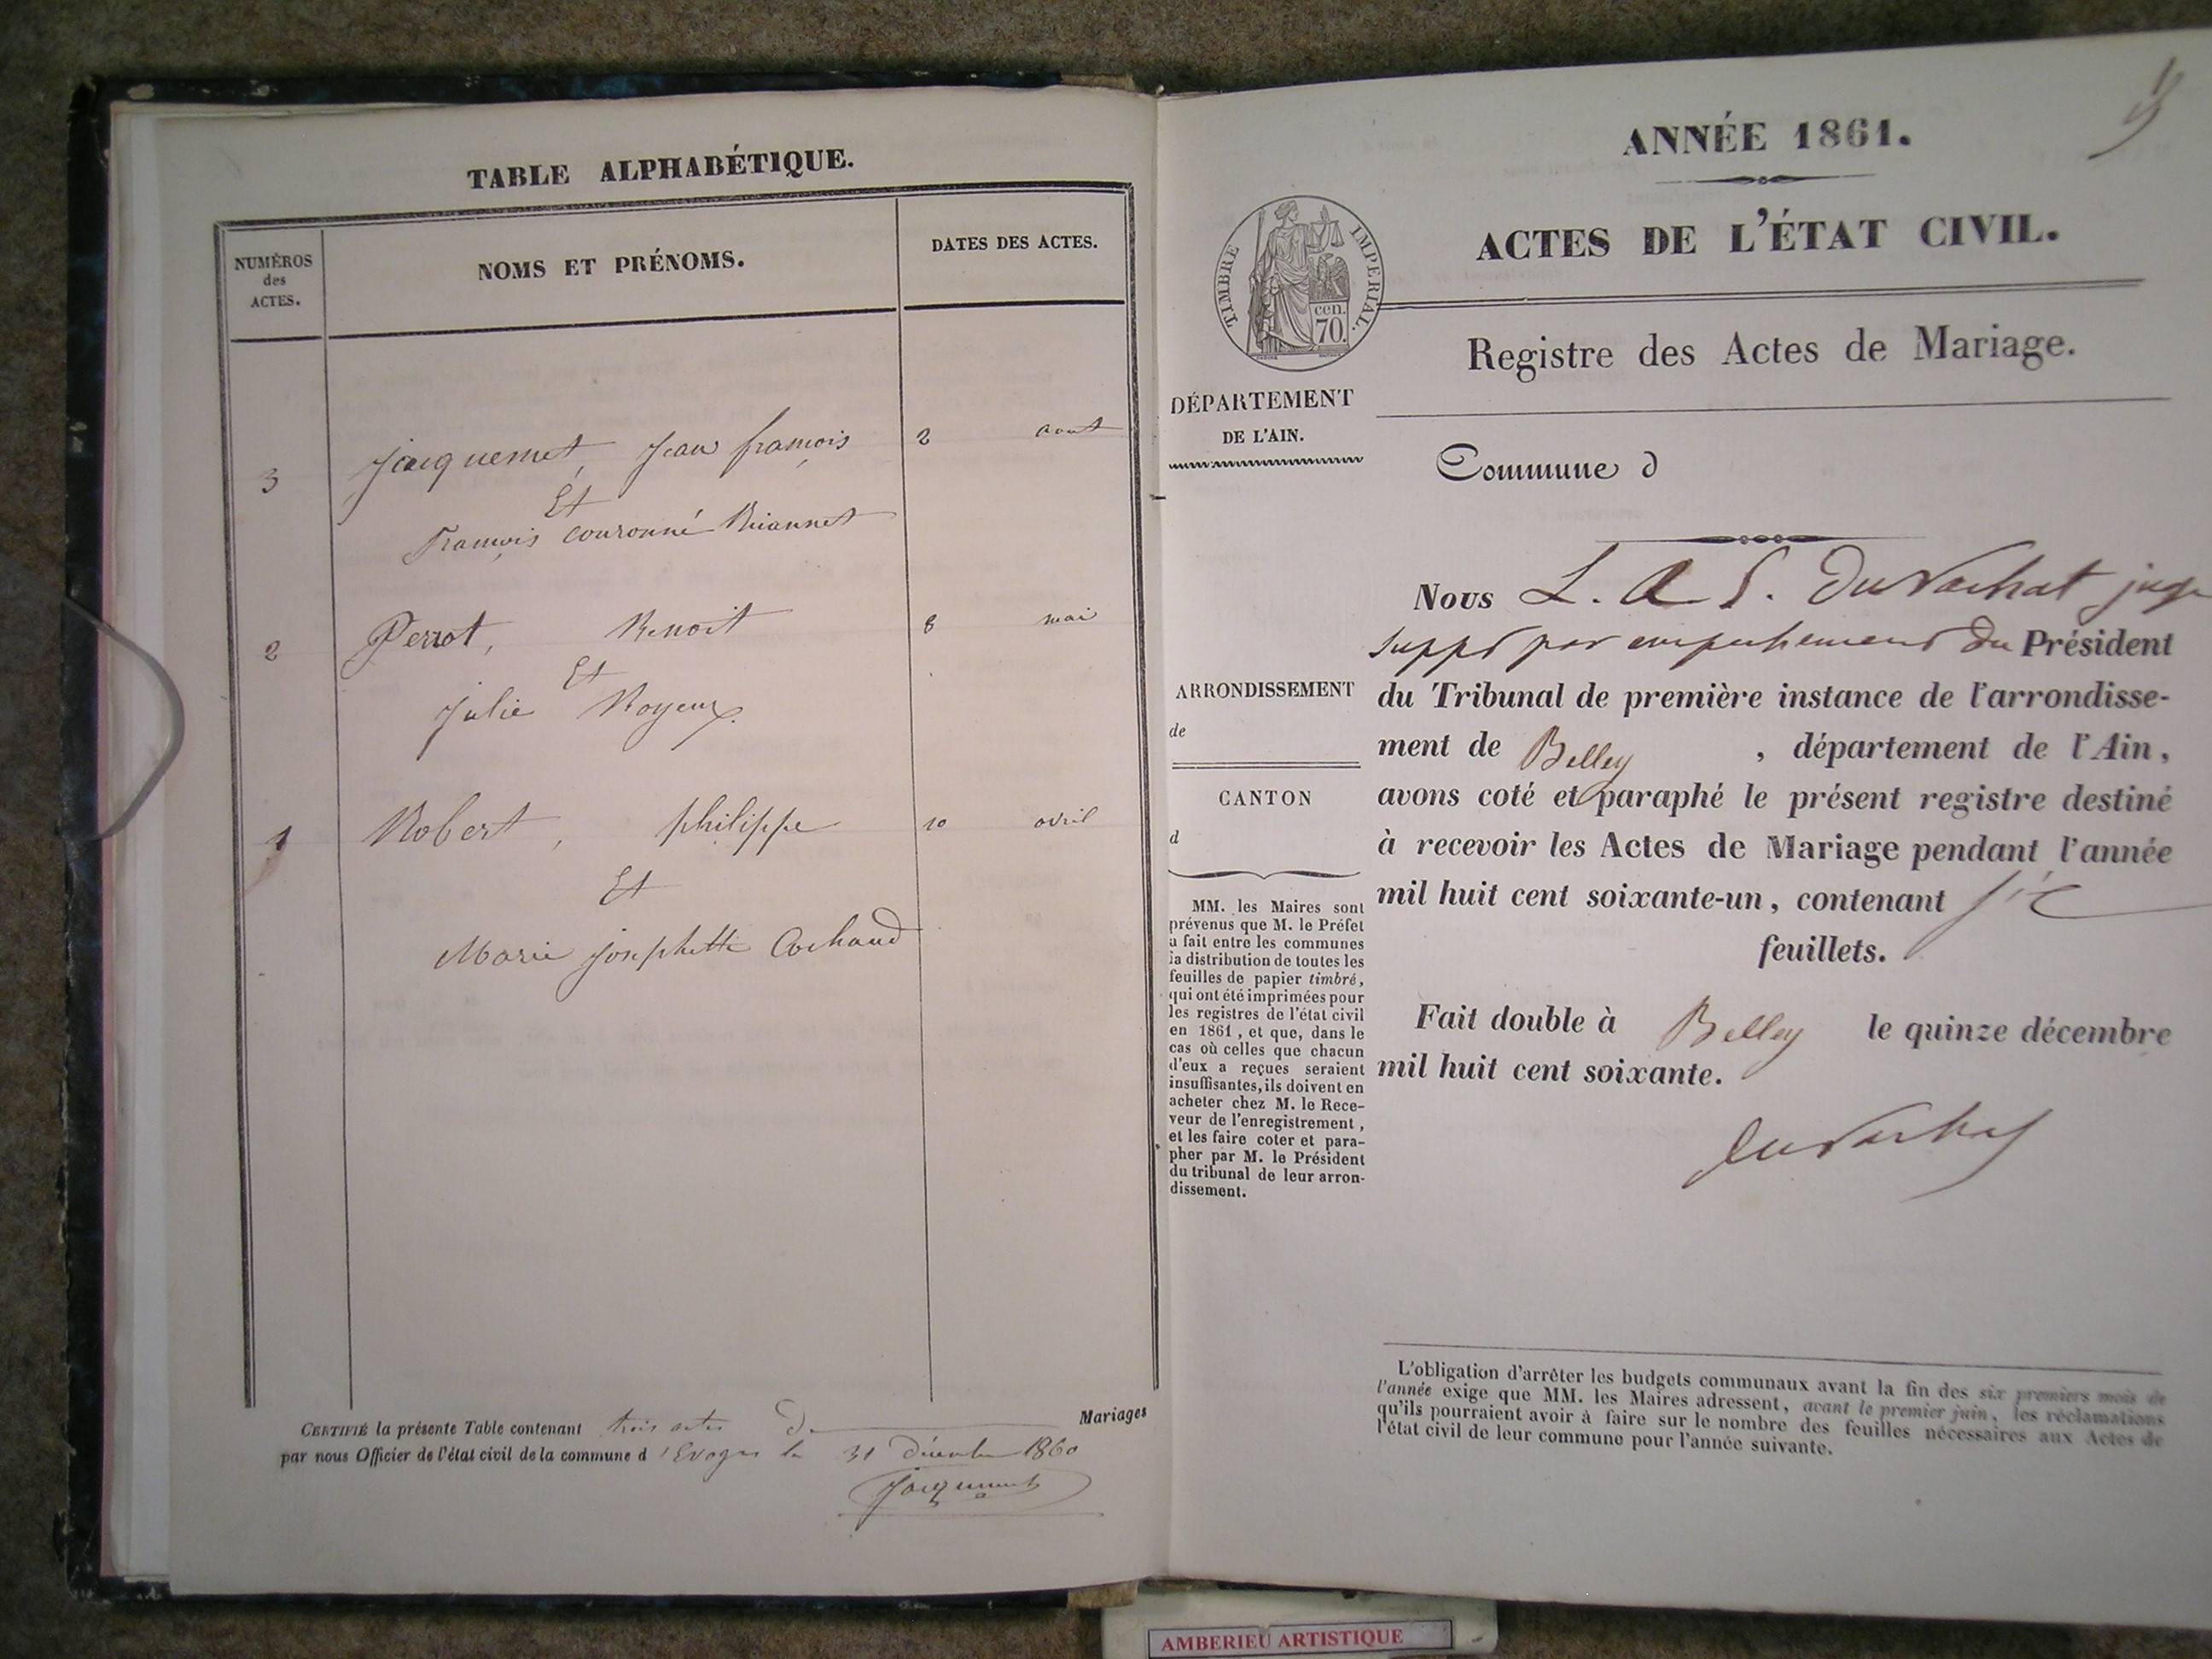 TABLE ALPHABÉTIQUE.
NUMÉROS
des
ACTES.
NOMS ET PRÉNOMS.
DATES DES ACTES.
3 Jacquemet, Jean françois 2 aout
Et
François couronné Riannet
2 Perrot, Benoit 8 mai
Et
Julie Royeux
1 Robert, philippe 10 avril
Et
Marie josephette
CERTIFIÉ la présente Table contenant trois actes De Mariages
par nous Officier de l'état civil de la commune d'Evoges le 31 décembre 1860
Jacquemet
ANNÉE 1861.
ACTES DE L'ÉTAT CIVIL.
TIMBRE IMPERIAL.
cen.
70.
Registre des Actes de Mariage.
DÉPARTEMENT
DE L'AIN.
Commune d
ARRONDISSEMENT
de
CANTON
d
MM. les Maires sont
prévenus que M. le Préfet
a fait entre les communes
la distribution de toutes les
feuilles de papier timbré,
qui ont été imprimées pour
les registres de l'état civil
en 1861, et que, dans le
cas où celles que chacun
d'eux a reçues seraient
insuffisantes, ils doivent en
acheter chez M. le Rece-
veur de l'enregistrement,
et les faire coter et para-
pher par M. le Président
du tribunal de leur arron-
dissement.
Nous L. A. S. DuVachat juge
suppt par empechement du Président
du Tribunal de première instance de l'arrondisse-
ment de Belley, département de l'Ain,
avons coté et paraphé le présent registre destiné
à recevoir les Actes de Mariage pendant l'année
mil huit cent soixante-un, contenant six
feuillets.
Fait double à Belley le quinze décembre
mil huit cent soixante.
DuVachat
L'obligation d'arrêter les budgets communaux avant la fin des six premiers mois de
l'année exige que MM. les Maires adressent, avant le premier juin, les réclamations
qu'ils pourraient avoir à faire sur le nombre des feuilles nécessaires aux Actes de
l'état civil de leur commune pour l'année suivante.
AMBERIEU ARTISTIQUE